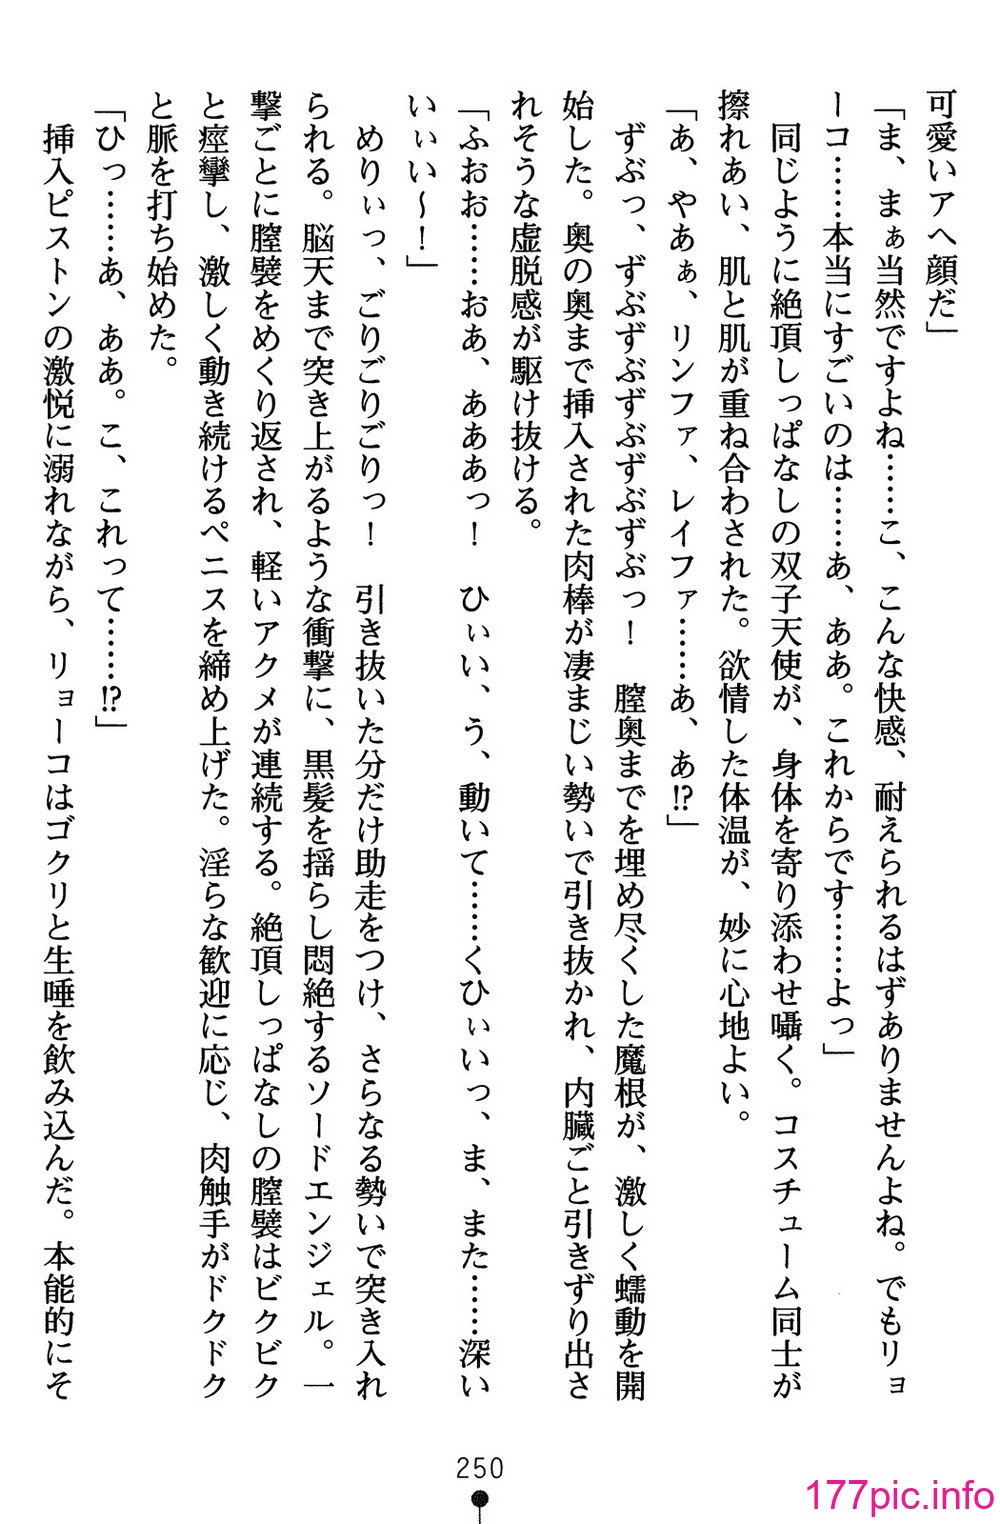 可愛いアヘ顔だ」
「ま、まぁ当然ですよね……こ、こんな快感、耐えられるはずありませんよね。でもリョ
ーコ……本当にすごいのは……あ、ああ。これからです……よっ」
同じように絶頂しっぱなしの双子天使が、身体を寄り添わせ囁く。コスチューム同士が
擦れあい、肌と肌が重ね合わされた。欲情した体温が、妙に心地よい。
「あ、やあぁ、リンファ、レイファ……あ、あ!?」
ずぶっ、ずぶずぶずぶずぶずぶっ！　膣奥までを埋め尽くした魔根が、激しく蠕動を開
始した。奥の奥まで挿入された肉棒が凄まじい勢いで引き抜かれ、内臓ごと引きずり出さ
れそうな虚脱感が駆け抜ける。
「ふおお……おあ、あああっ！　ひぃい、う、動いて……くひぃいっ、ま、また……深い
いぃい～！」
めりぃっ、ごりごりごりっ！　引き抜いた分だけ助走をつけ、さらなる勢いで突き入れ
られる。脳天まで突き上がるような衝撃に、黒髪を揺らし悶絶するソードエンジェル。一
撃ごとに膣襞をめくり返され、軽いアクメが連続する。絶頂しっぱなしの膣襞はビクビク
と痙攣し、激しく動き続けるペニスを締め上げた。淫らな歓迎に応じ、肉触手がドクドク
と脈を打ち始めた。
「ひっ……あ、ああ。こ、これって……!?」
挿入ピストンの激悦に溺れながら、リョーコはゴクリと生唾を飲み込んだ。本能的にそ
250
177pic.info